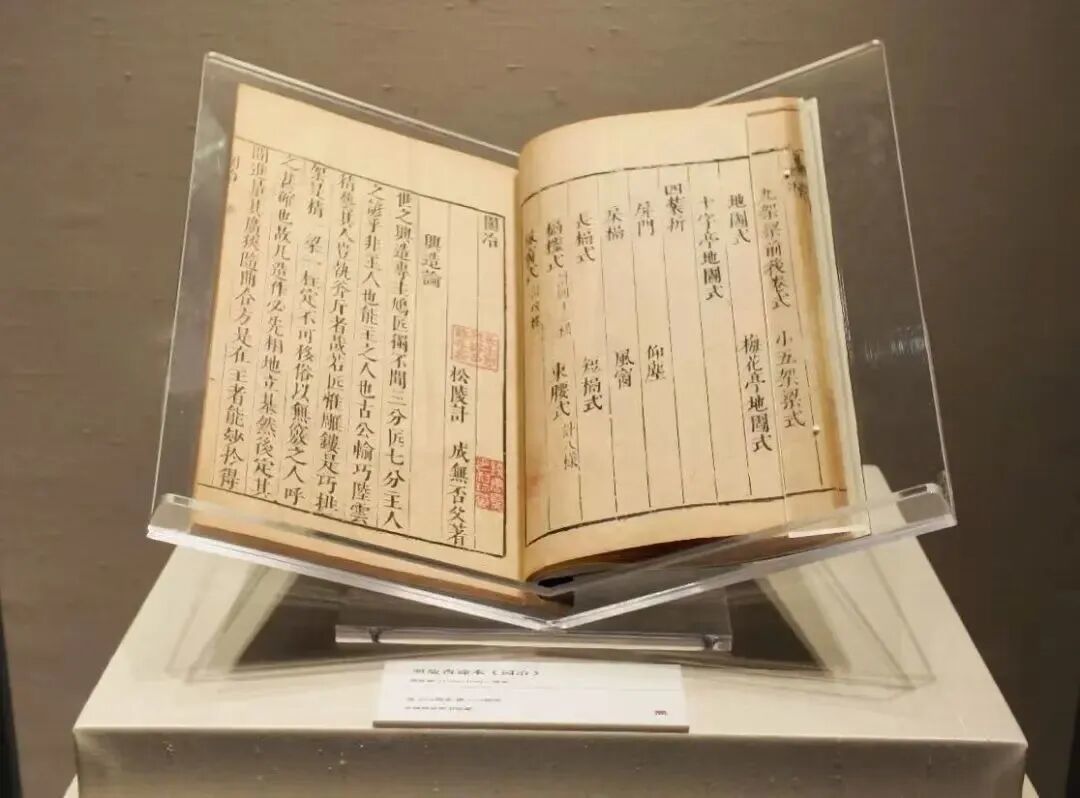 九架梁前後卷式　小五架梁式
地圖式　梅花亭地圖式
十字亭地圖式
四裝折
屏門　仰塵
風窗
長槅式　短槅式
槅櫺式　束腰式　計八樣
風窗式
園冶
松陵計　成無否父著
興造論
世之興造專主鳩匠獨不聞三分匠七分主人
之諺乎非主人也能主之人也古公輸巧陸雲
精藝其人豈執斧斤者哉若匠惟雕鏤是巧排
架是精　梁　柱定不可移俗以無竅之人呼
之甚確也故凡造作必先相地立基然後定其
間進量其廣狹隨曲合方是在主者能妙於得